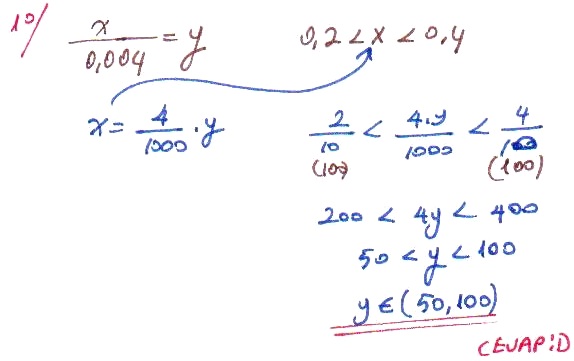 10/ x/0,004 = y 0,2 < x < 0,4
x = 4/1000 · y 2/10 < 4.y/1000 < 4/10
(100) (100)
200 < 4y < 400
50 < y < 100
y ∈ (50, 100)
CEVAP: D